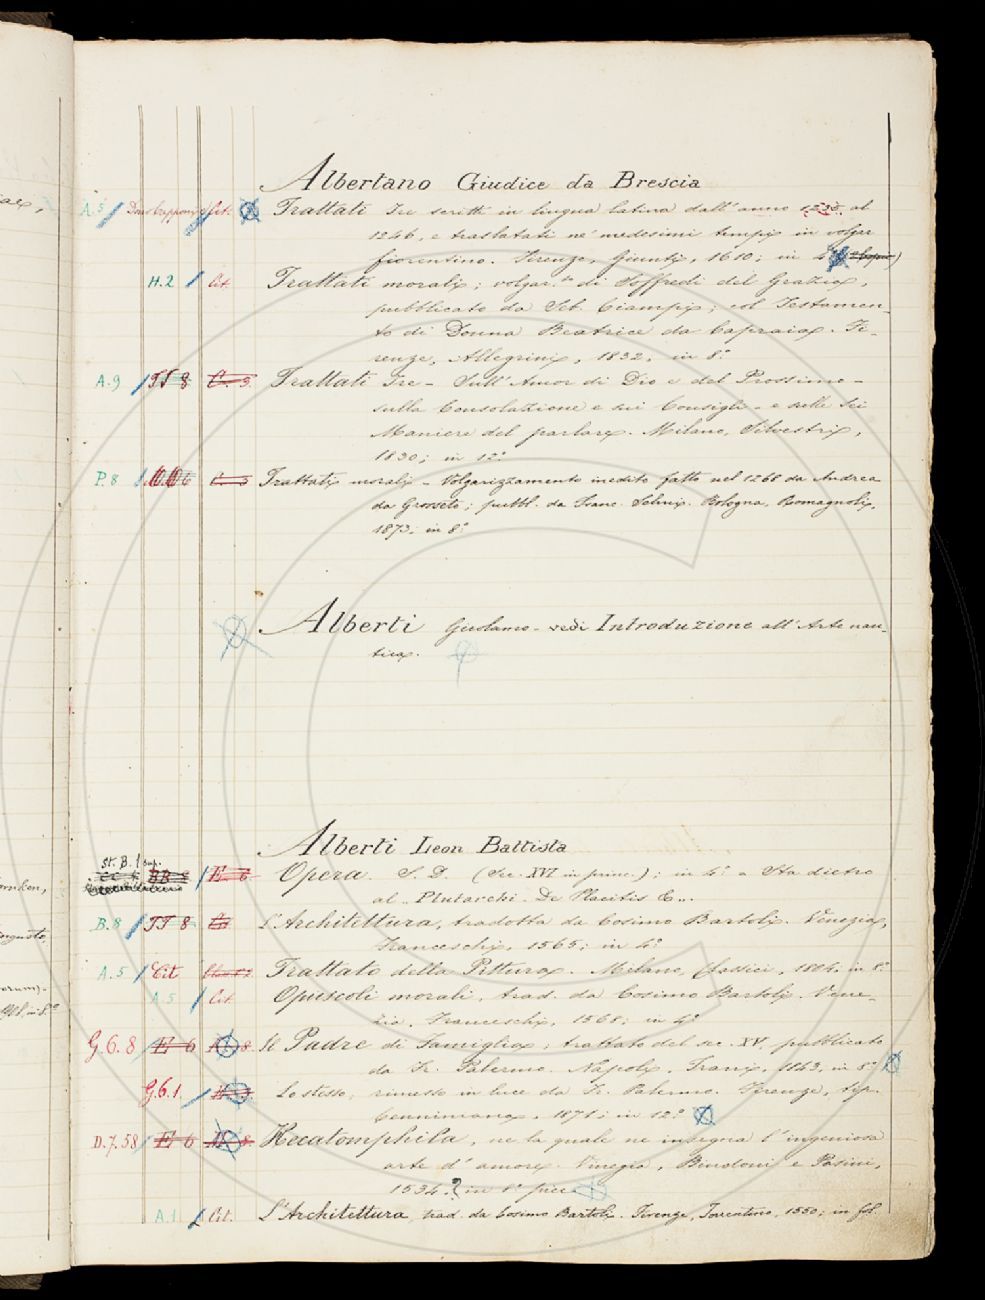 Albertano Giudice da Brescia
A.5 Cit. Trattati Tre scritti in lingua latina dall'anno 1235 al
1246, e traslatati ne' medesimi tempi in volgar
fiorentino. Firenze, Giunti, 1610; in 4°
H.2 Cit. Trattati morali; volgar.ti di Soffredi del Grazia,
pubblicato da Seb. Ciampi; col Testamen-
to di Donna Beatrice da Capraia. Fi-
renze, Allegrini, 1832, in 8°
A.9 TT 8 C. 3. Trattati Tre - Sull'Amor di Dio e del Prossimo -
sulla Consolazione e sui Consigli - e sulle Sei
Maniere del parlare. Milano, Silvestri,
1830; in 12°
P.8 C. 3 Trattati morali - Volgarizzamento inedito fatto nel 1268 da Andrea
da Grosseto; pubbl. da Franc. Selmi. Bologna, Romagnoli,
1873, in 8°
Alberti Girolamo - vedi Introduzione all'Arte nau-
tica.
Alberti Leon Battista
St. B. 1 sup.
BB 8 E. 6 Opera. S. D. (Sec. XVI in princ.); in 4° = Sta dietro
al - Plutarchi. De Placitis &..
B.8 TT 8 L'Architettura, tradotta da Cosimo Bartoli. Venezia,
Franceschi, 1565; in 4°
A.5 Cit Trattato della Pittura. Milano, Classici, 1804, in 8°
A 5 Cit Opuscoli morali, trad. da Cosimo Bartoli. Vene-
zia, Franceschi, 1568; in 4°
G.6.8 E 6 Il Padre di Famiglia; trattato del sec. XV, pubblicato
da Fr. Palermo. Napoli, Trani, 1843, in 8°
G.6.1. Lo stesso, rimesso in luce da Fr. Palermo. Firenze, tip.
Cenniniana, 1871; in 12°
D.7.58 E 6 Hecatomphila, ne la quale ne insegna l'ingeniosa
arte d'amore. Vinegia, Bindoni e Pasini,
1534? in 8° picc.
A.1 Cit. L'Architettura, trad. da Cosimo Bartoli. Firenze, Torrentino, 1550; in fol.